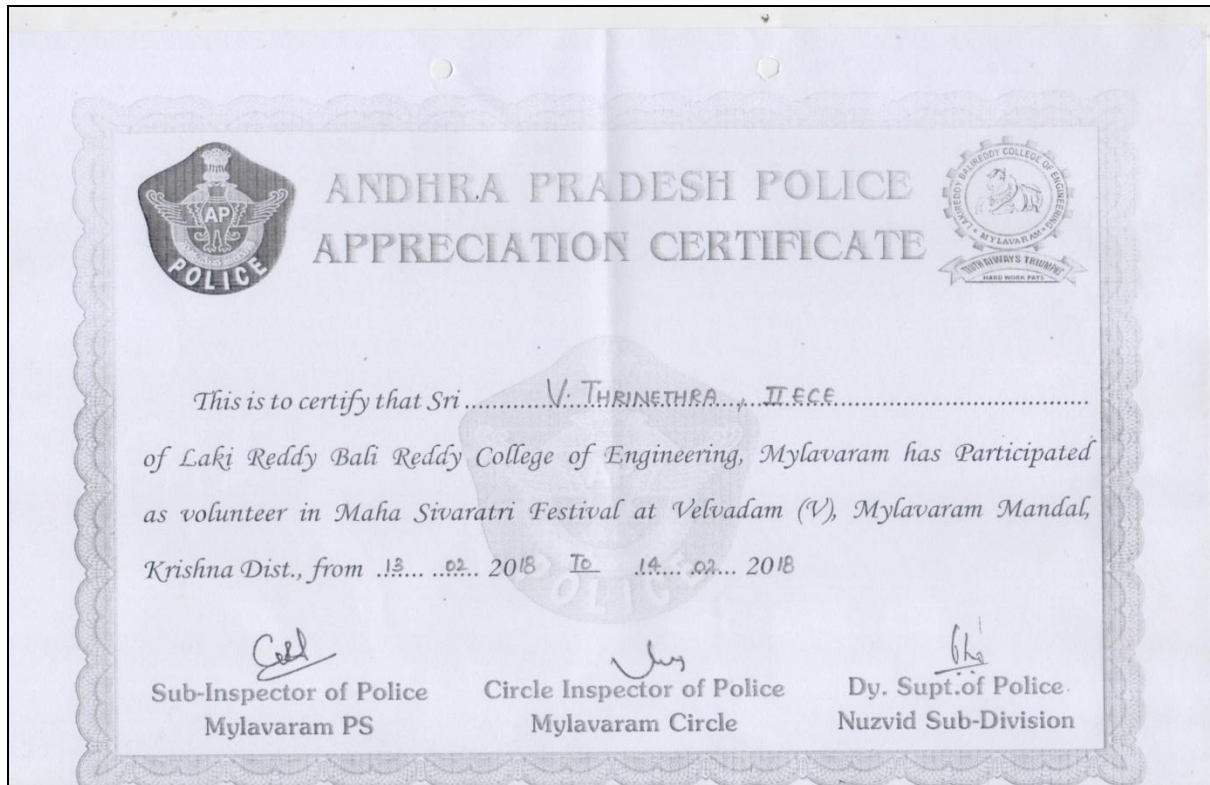 ANDHRA PRADESH POLICE
APPRECIATION CERTIFICATE
AP
POLICE
LAKIREDDY BALIREDDY COLLEGE OF ENGINEERING
MYLAVARAM
TRUTH ALWAYS TRIUMPHS
HARD WORK PAYS
This is to certify that Sri ........... V. THRINETHRA , II ECE ...........
of Laki Reddy Bali Reddy College of Engineering, Mylavaram has Participated
as volunteer in Maha Sivaratri Festival at Velvadam (V), Mylavaram Mandal,
Krishna Dist., from ..13.... ..02.. 2018 To ..14.... .02... 2018
POLICE
Sub-Inspector of Police
Mylavaram PS
Circle Inspector of Police
Mylavaram Circle
Dy. Supt.of Police
Nuzvid Sub-Division